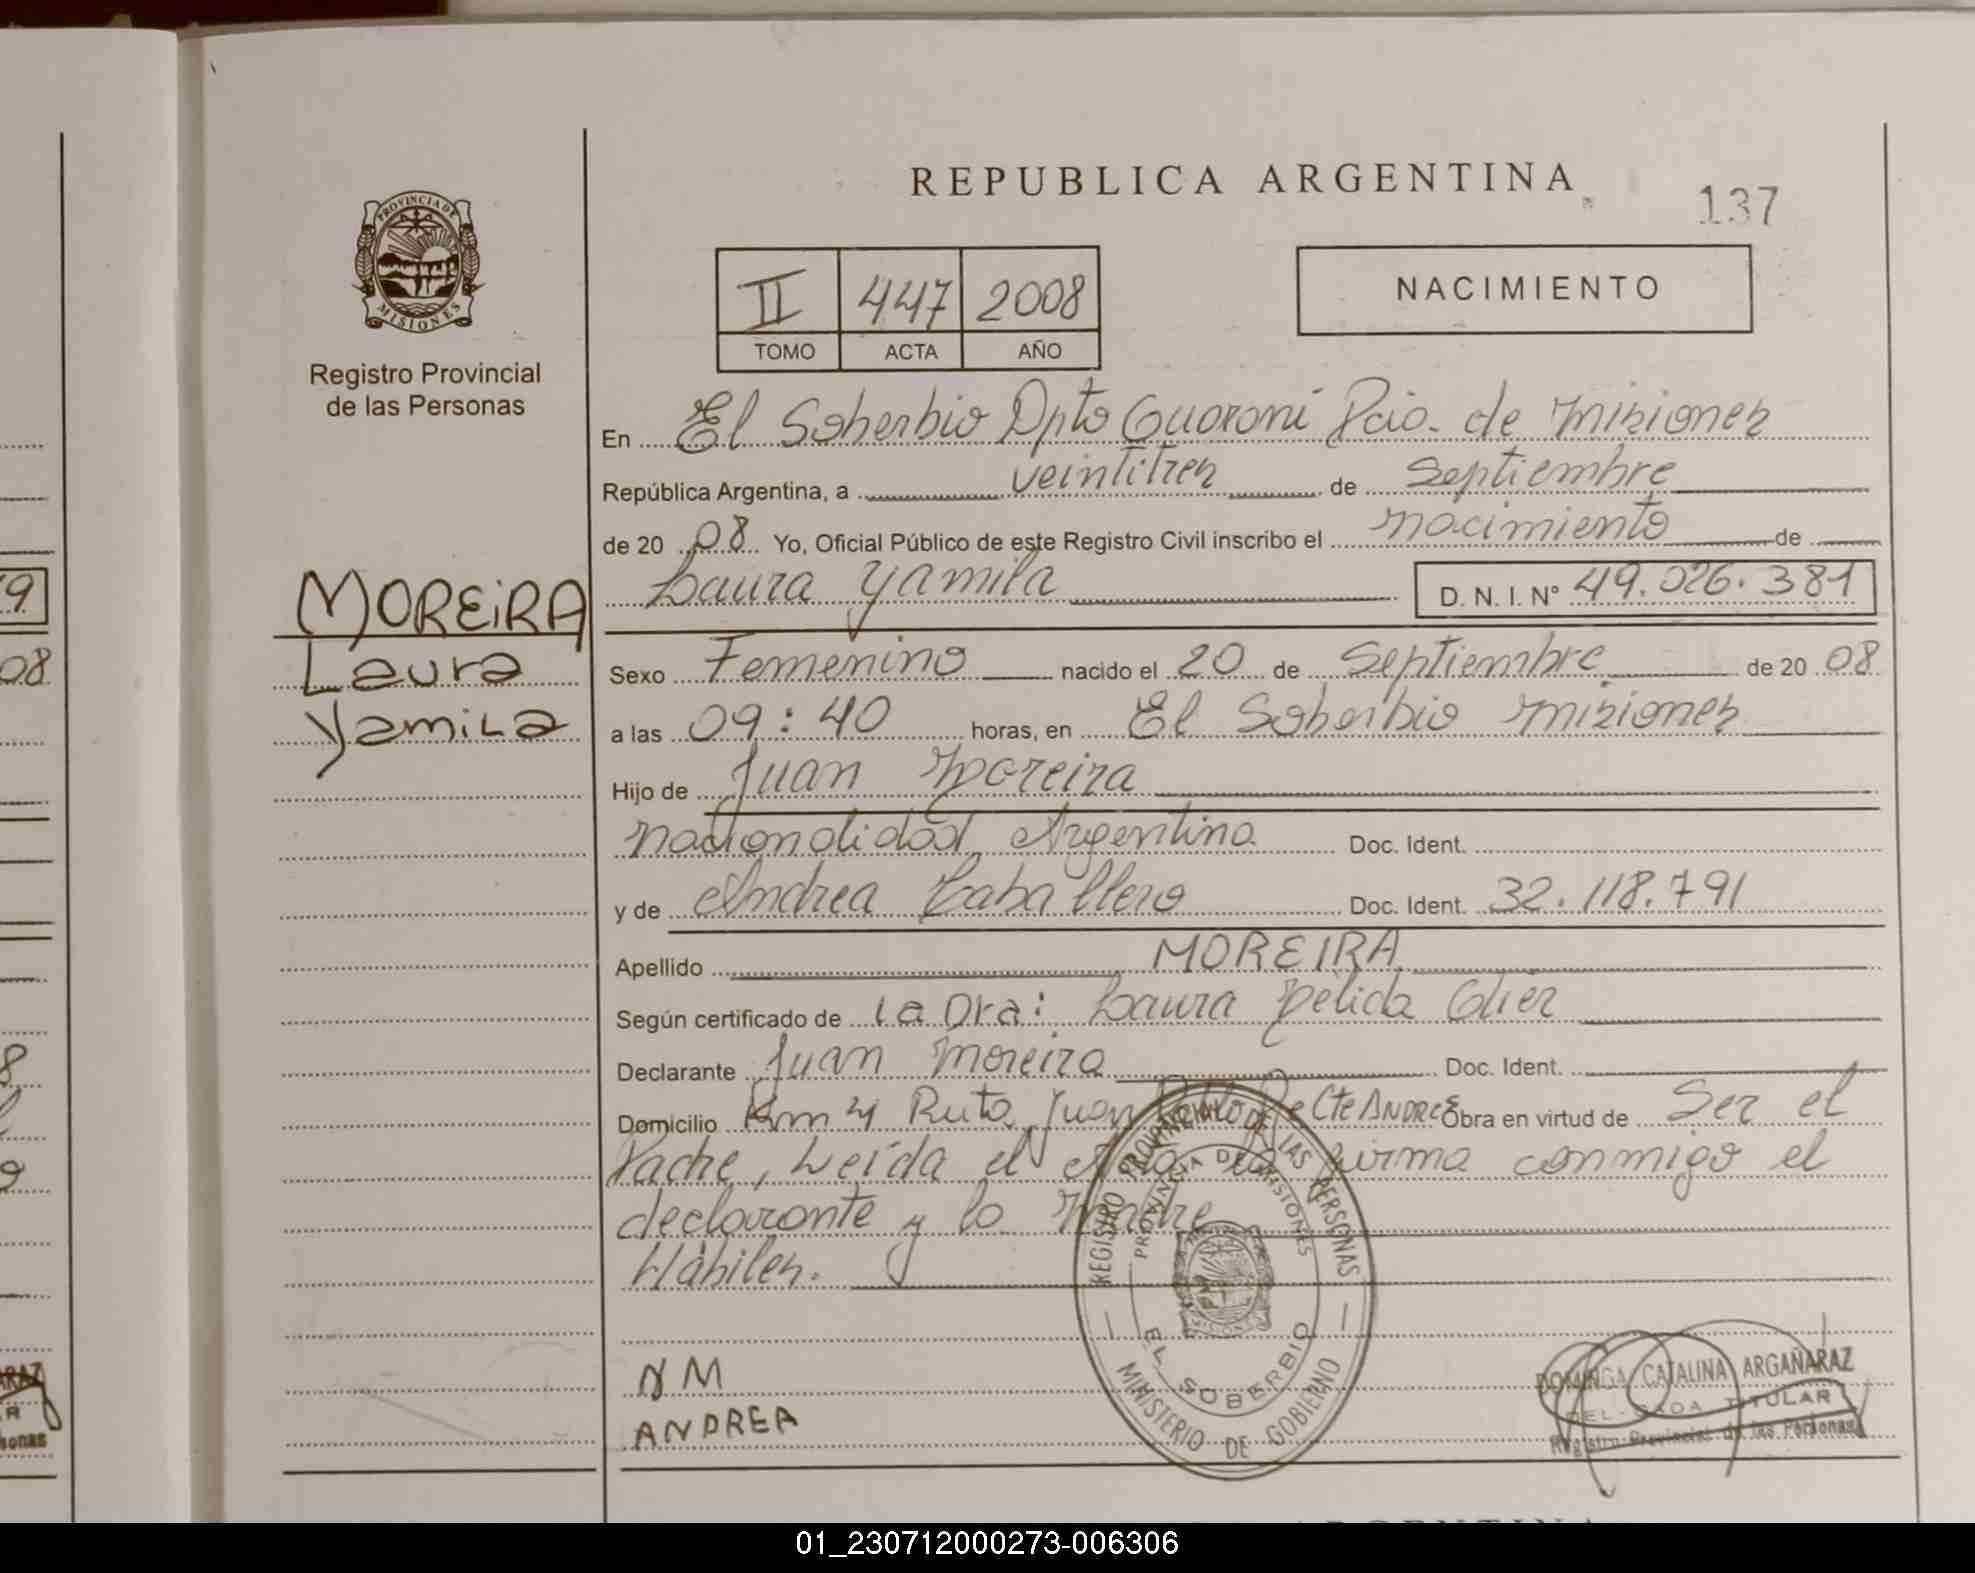 REPUBLICA ARGENTINA
137
PROVINCIA DE MISIONES
Registro Provincial
de las Personas
II 447 2008
TOMO ACTA AÑO
NACIMIENTO
En El Soberbio Dpto Guaraní Pcia. de Misiones
República Argentina, a veintitres de Septiembre
de 20 08 Yo, Oficial Público de este Registro Civil inscribo el nacimiento de
Laura Yamila D. N. I. Nº 49.026.381
MOREIRA
Laura
Yamila
Sexo Femenino nacido el 20 de Septiembre de 20 08
a las 09:40 horas, en El Soberbio Misiones
Hijo de Juan Moreira
Nacionalidad Argentina Doc. Ident.
y de Andrea Caballero Doc. Ident. 32.118.791
Apellido MOREIRA
Según certificado de La Dra: Laura Nelida
Declarante Juan Moreira Doc. Ident.
Domicilio Km 4 Ruta Juan Obra en virtud de Ser el
Padre, Leída el Acta la firma conmigo el
declarante y la Madre
Hábiles.
REGISTRO PROVINCIAL DE LAS PERSONAS
PROVINCIA DE MISIONES
EL SOBERBIO
MINISTERIO DE GOBIERNO
NM
ANDREA
DOMINGA CATALINA ARGAÑARAZ
DELEGADA TITULAR
Registro Provincial de las Personas
9
08
8
ARAZ
R
sonas
01_230712000273-006306